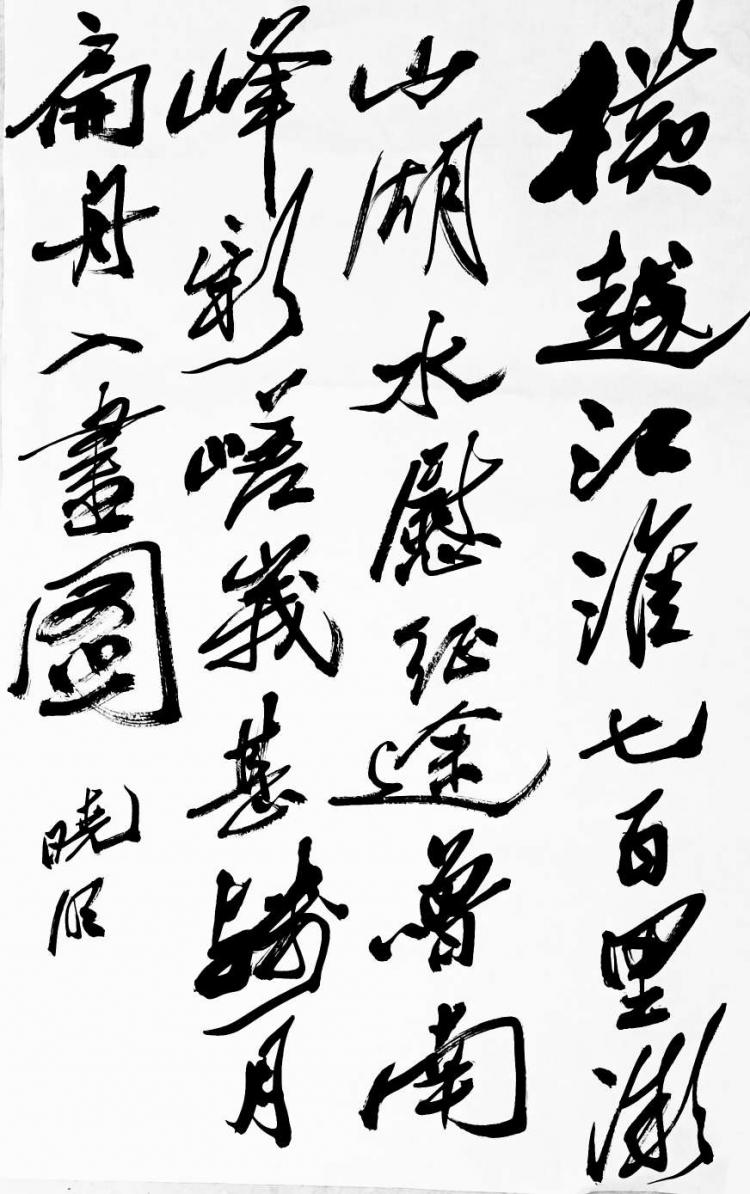 橫越江淮七百里微
山湖水慰征途魯南
峰影嵯峨甚殘月
扁舟入畫圖
曉明